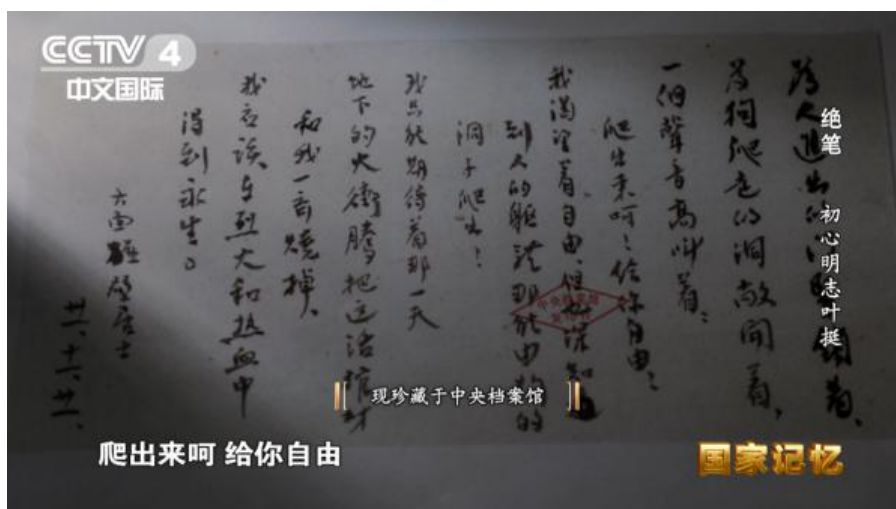 CCTV 4
中文国际
绝笔 初心明志叶挺
為人進出的鎖着、
為狗爬走的洞敞開着，
一個聲音高叫着：
爬出来呵！给你自由！
我渴望着自由、但也深知道
到人的軀体那能由狗的
洞子爬出！
我只能期待着那一天
地下的火衝騰把这活棺材
和我一齐燒掉、
我应该在烈火和热血中
得到永生。
六面碰壁居士
卅一、十一、廿一、
中央档案馆
现珍藏于中央档案馆
爬出来呵 给你自由
国家记忆